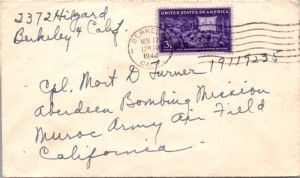 2372 Hilgard
Berkeley 4 Calif
BERKELEY
NOV 17
1944
UNITED STATES OF AMERICA
3¢
Cpl. Mort D Turner 19119235
Aberdeen Bombing Mission
Muroc Army Air Field
California